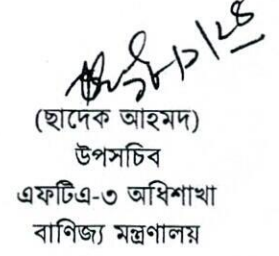 (ছাদেক আহমদ)
উপসচিব
এফটিএ-৩ অধিশাখা
বাণিজ্য মন্ত্রণালয়